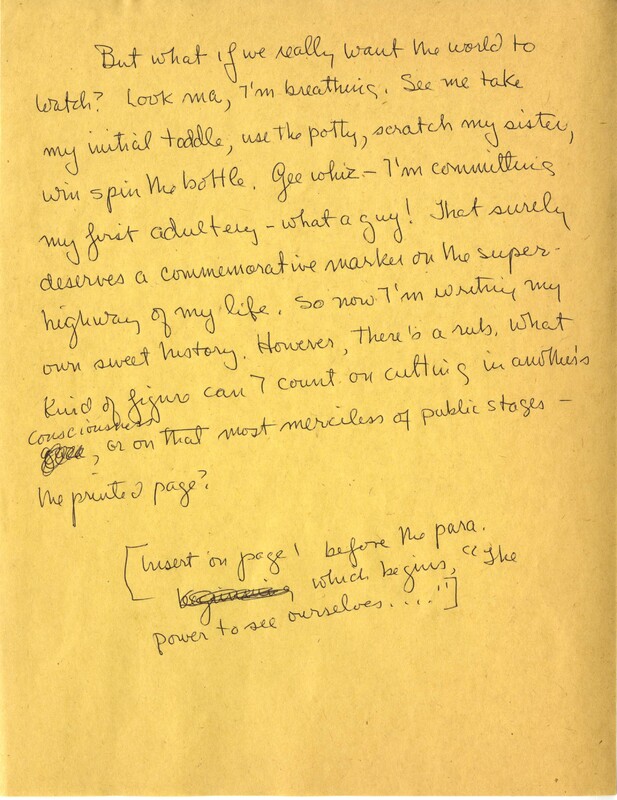 But what if we really want the world to
watch? Look ma, I'm breathing. See me take
my initial toddle, use the potty, scratch my sister,
win spin the bottle. Gee whiz - I'm committing
my first adultery - what a guy! That surely
deserves a commemorative marker on the super-
highway of my life. So now I'm writing my
own sweet history. However, there's a rub. What
kind of figure can I count on cutting in another's
consciousness
, or on that most merciless of public stages -
the printed page?
[Insert on page 1 before the para.
beginning which begins, "The
power to see ourselves...."]